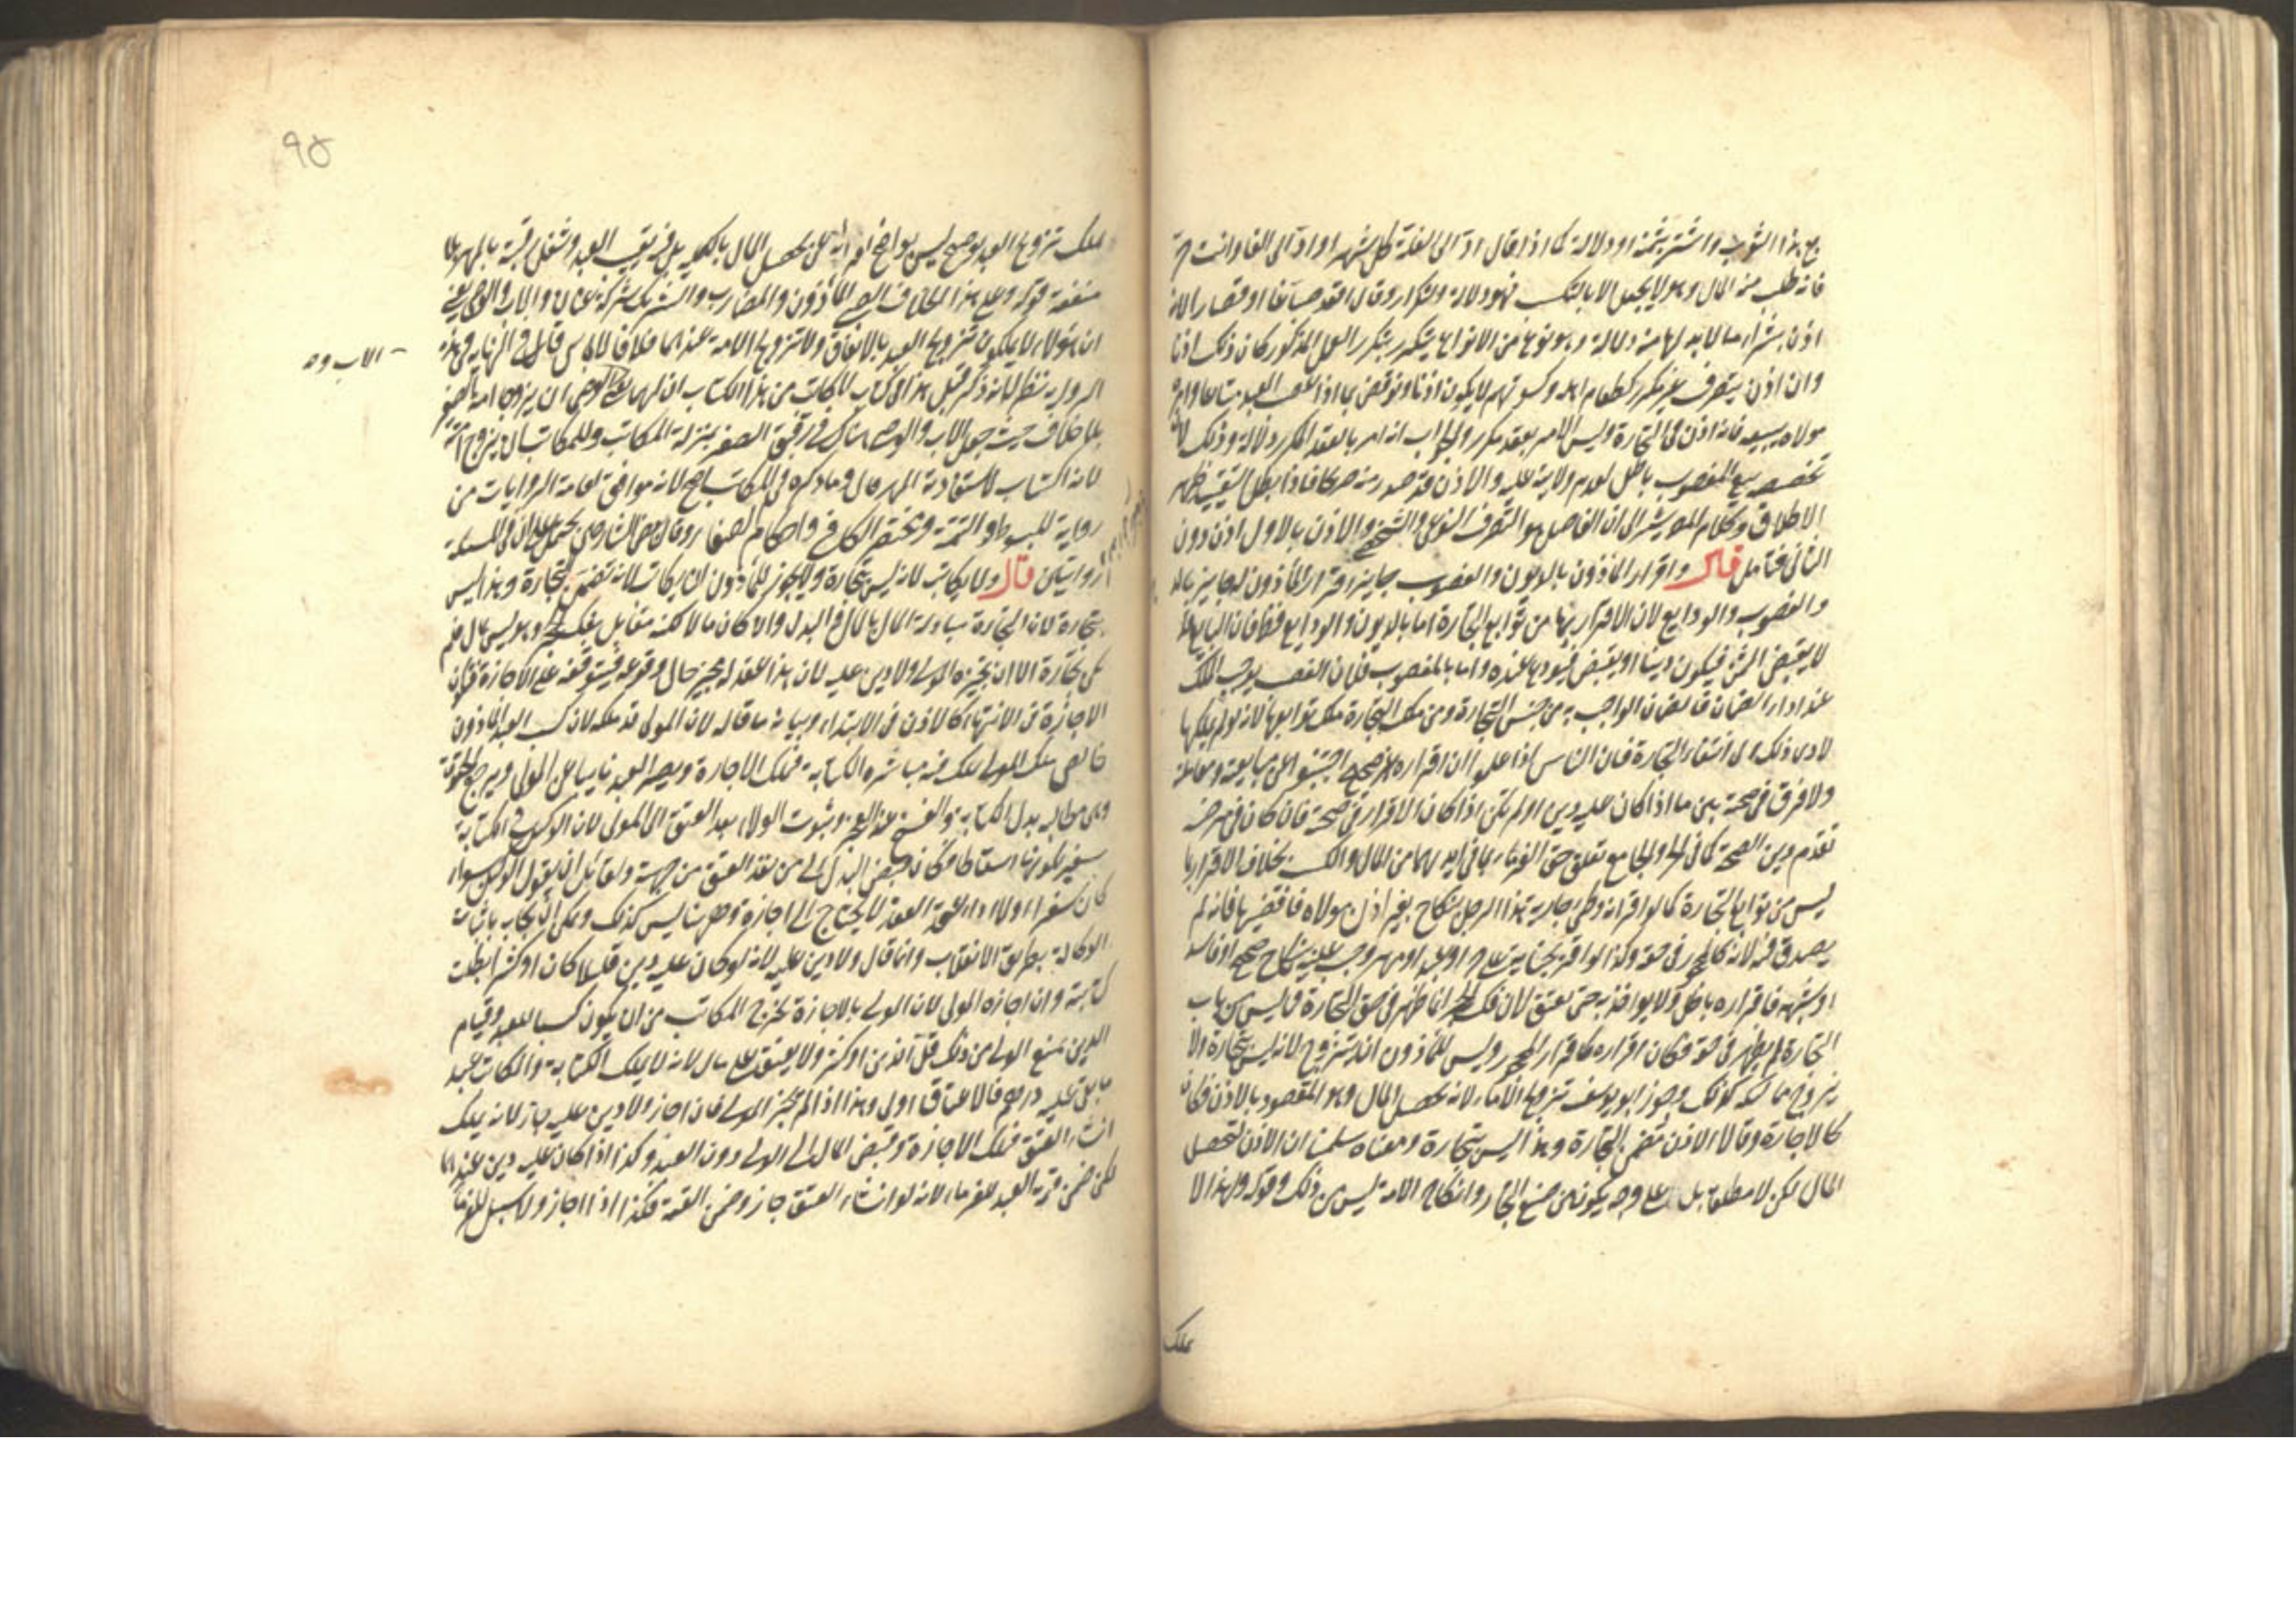 بع هذا الثوب واشتر بثمنه او دلالة كما اذا قال اد الى الغلة كل شهر او اد الى الفا وانت حر
فانه طلب منه المال وهو لا يحصل الا بالتكسب فهو دلالة التكرار وقال اقعد صباغا او قصارا لانه
اذن بشراء ما لا بد لهما منه دلالة وهو نوع من الانواع يتكرر بتكرر العمل المذكور كان ذلك اذنا
وان اذن بتصرف غير مكرر كطعام اهله وكسوتهم لا يكون اذنا ونوقض بما اذا غصب العبد متاعا وامره
مولاه ببيعه فانه اذن فى التجارة وليس الامر بعقد مكرر والجواب انه امر بالعقد المكرر دلالة وذلك لان
تخصيصه ببيع المغصوب باطل لعدم ولايته عليه والاذن قد صدر منه صريحا فاذا بطل التقييد ظهر
الاطلاق وكلام المص يشير الى ان الفاصل هو التصرف النوعى والشخصى والاذن بالاول اذن دون
الثانى فتامل قال واقرار الماذون بالديون والغصوب جايز اقرار الماذون له جايز بالديون
والغصوب والودايع لان الاقرار بها من توابع التجارة اما بالديون والودايع فظ فان البايع قد
لا يقبض الثمن فيكون دينا او يقبض فيودعها عنده واما بالمغصوب فلان الغصب يوجب الملك
عند اداء الضمان فالضمان الواجب به من جنس التجارة ومن ملك التجارة ملك توابعها لانه لو لم يملكها
لادى ذلك الى انتفاء التجارة فان الناس اذا علموا ان اقراره غير صحيح اجتنبوا عن مبايعته ومعاملته
ولا فرق فى صحته بين ما اذا كان عليه دين او لم يكن اذا كان الاقرار فى صحته فان كان فى مرضه
تقدم دين الصحة كما فى الحر والجامع تعلق حق الغرماء بما فى ايديهما من المال والكسب بخلاف الاقرار بما
ليس من توابع التجارة كما لو اقر انه وطئ جارية هذا الرجل بنكاح بغير اذن مولاه فافتضها فانه لم
يصدق فيه لانه كالمحجور فى حقه وكذا لو اقر بجناية على حر او عبد او مهر وجب عليه بنكاح صحيح او فاسد
او شبهة فاقراره باطل ولا يواخذ به حتى يعتق لان فك الحجر انما ظهر فى حق التجارة فما ليس من باب
التجارة لم يظهر فى حقه فكان اقراره كاقرار المحجور وليس للماذون ان يتزوج لانه ليس بتجارة ولا
يزوج مماليكه كذلك وجوز ابو يوسف تزويج الاماء لانه تحصيل المال وهو المقصود بالاذن فكان
كالاجارة وقالا الاذن تضمن التجارة وهذا ليس بتجارة ومعناه سلمنا ان الاذن لتحصيل
المال لكن لا مطلقا بل على وجه يكون من صنيع التجار وانكاح الامة ليس من ذلك وقوله ولهذا لا
يملك
٩٥
يملك تزويج العبد توضيح ليس بواضح اذ ليس تحصيل المال بالكلية بل فيه تعييب العبد وشغل رقبته بالمهر بلا
منفعة قوله وعلى هذا الخلاف الصبى الماذون والمضارب والشريك شركة عنان والاب والوصى يعنى
ان هؤلاء لا يملكون تزويج العبد بالاتفاق ولا تزويج الامة عندهما خلافا لابى يوسف قال فى النهاية فى هذه
الاب وص
الرواية نظر لانه ذكر قبل هذا فى كتاب المكاتب من هذا الكتاب ان لهما يعنى الاب والوصى ان يزوجا امة الصغير
بلا خلاف حيث جعل الاب والوصى هناك فى رقيق الصغير بمنزلة المكاتب وللمكاتب ان يزوج امته
لانه اكتساب لاستفادته المهر قال وما ذكره فى المكاتب اصح لانه موافق لعامة الروايات من
رواية المبسوط والتتمة ومختصر الكافى واحكام الصغار وقال بعض الشارحين يحتمل ان فى المسئلة
روايتين قال ولا يكاتب لانه ليس بتجارة ولا يجوز للماذون ان يكاتب لانه تضمن التجارة وهذا ليس
بتجارة لان التجارة مبادلة المال بالمال والبدل وان كان مالا لكنه مقابل بفك الحجر وهو ليس بمال فلم
يكن تجارة الا ان يجيزه المولى ولا دين عليه لان هذا العقد له مجيز حال وقوعه فيتوقف على الاجازة فتكون
الاجازة فى الانتهاء كالاذن فى الابتداء وبيانه ما قاله لان المولى قد ملكه لان كسب العبد الماذون
خالص ملك المولى يملك فيه مباشرة الكتابة فيملك الاجازة ويصير العبد نايبا عن المولى ويرجع الحقوق
وهى مطالبة بدل الكتابة والفسخ عند العجز وثبوت الولاء بعد العتق الى المولى لان الوكيل فى الكتابة
سفير لكونها اسقاطا فكان قبض البدل الى من نفذ العتق من جهته ولقائل ان يقول الوكيل سواء
كان سفيرا او لا لصحة العقد لا يحتاج الى اجازة وههنا ليس كذلك ويمكن ان يجاب بان هذه
الوكالة بطريق الانقلاب وانما قال ولا دين عليه لانه لو كان عليه دين قليلا كان او كثيرا بطلت
كتابته وان اجازه المولى لان المولى بالاجازة يخرج المكاتب من ان يكون كسبا للعبد وقيام
الدين يمنع المولى من ذلك قل الدين او كثر ولا يعتق على مال لانه لا يملك الكتابة والمكاتب عبد
ما بقى عليه درهم فالاعتاق اولى وهذا اذا لم يجز المولى فان اجاز ولا دين عليه جاز لانه يملك
انشاء العتق فيملك الاجازة وقبض المال الى المولى دون العبد وكذا اذا كان عليه دين عندهما
لكن ضمن قيمة العبد للغرماء لانه لو انشاء العتق جاز وضمن القيمة فكذا اذا اجاز ولا سبيل للغرماء